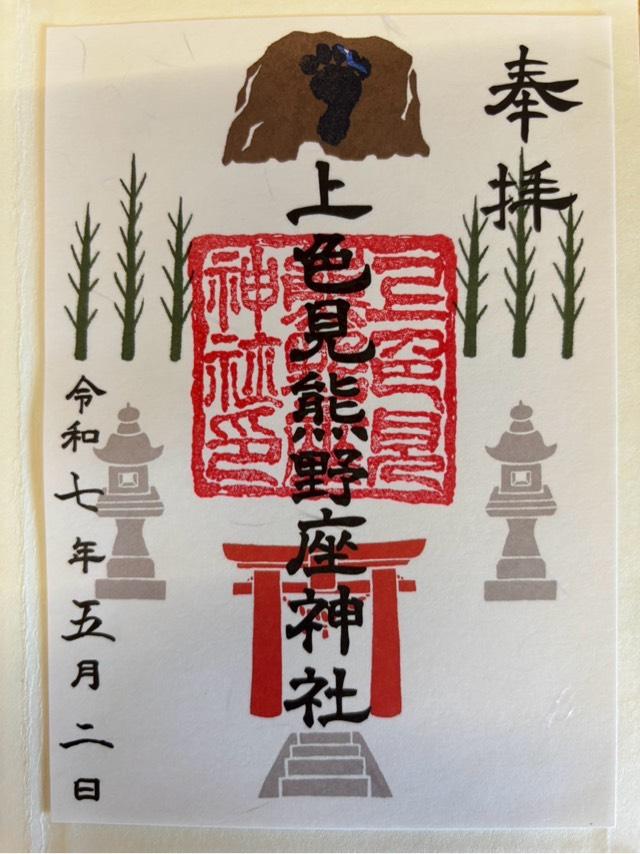 奉拝
上色見熊野座神社
上色見
熊野座
神社印
令和七年五月二日